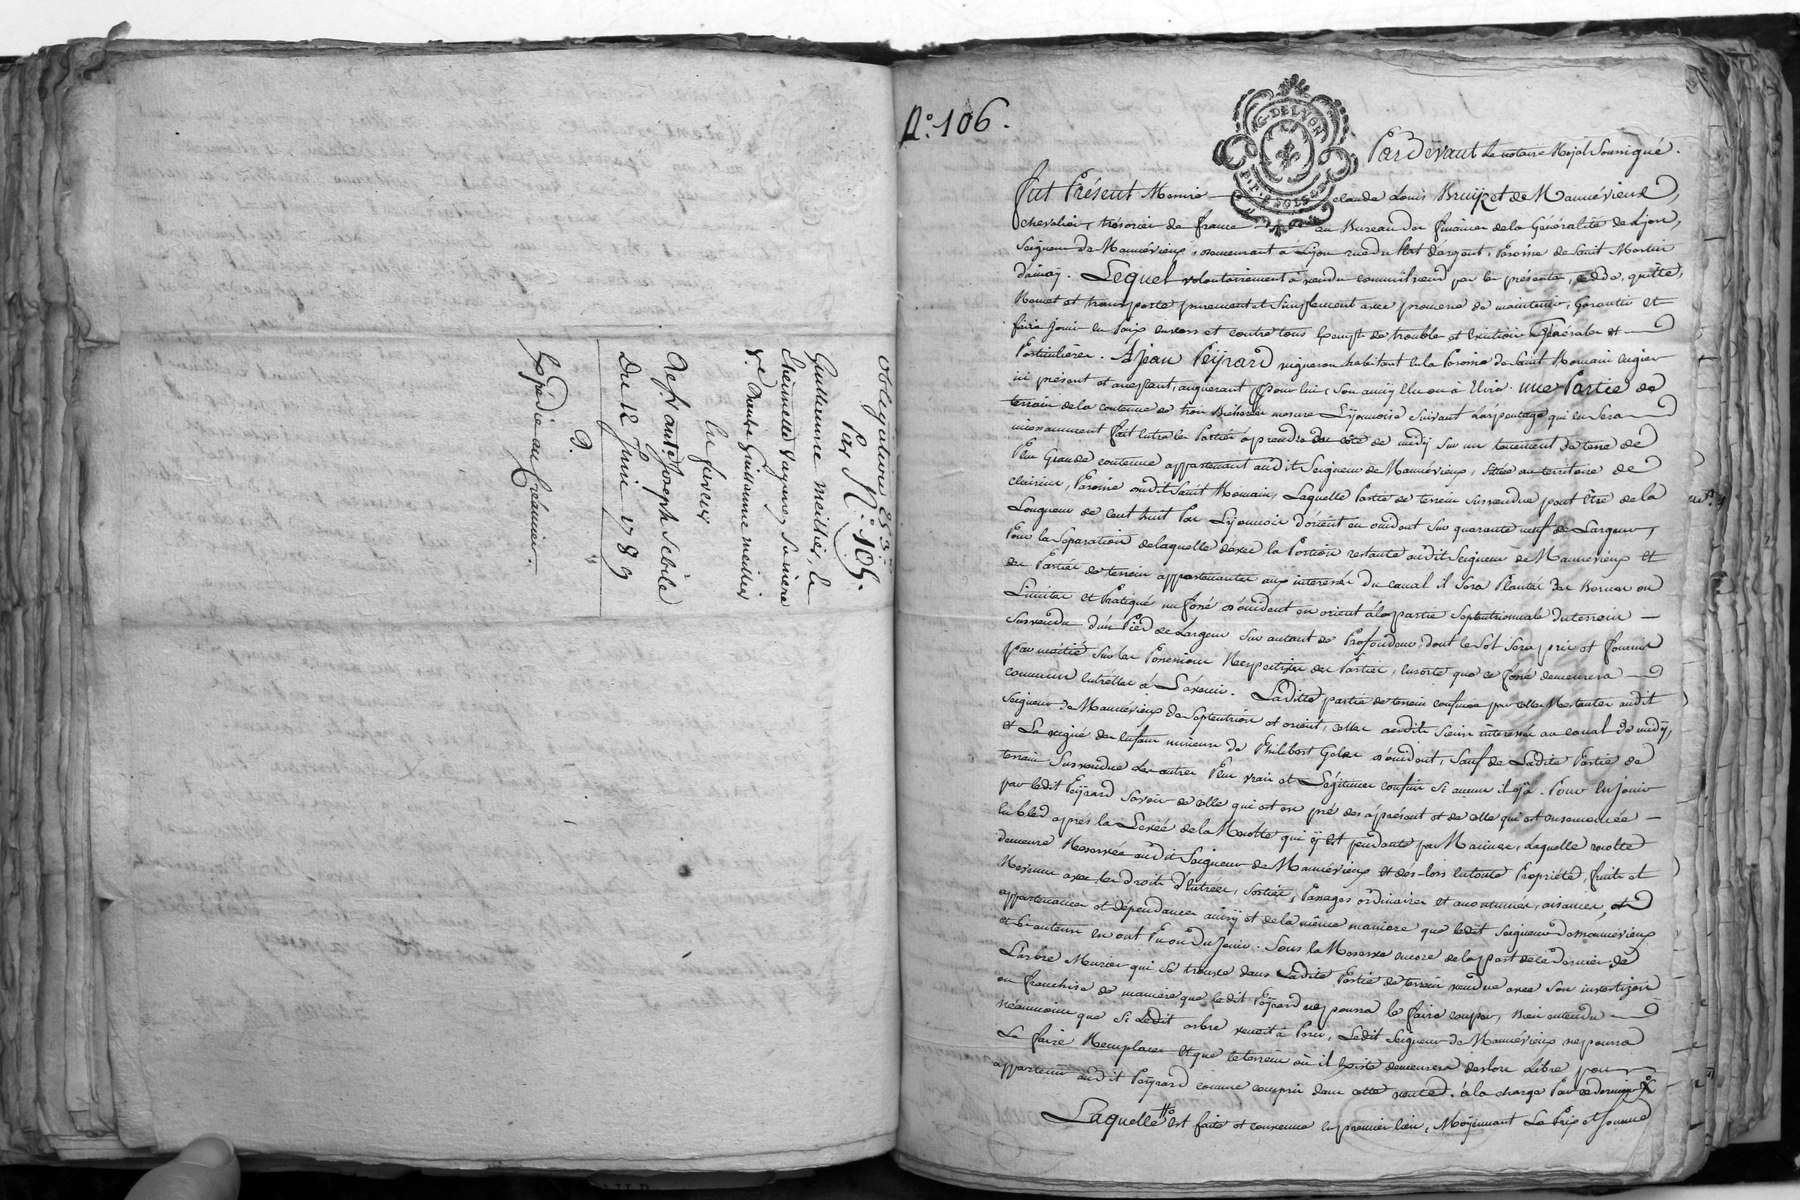 obligatoire 253
Par N.° 105.
Guillaume meillier, le
v.e Diante Guillaume meillier
en faveur
de S. ant.e Joseph Sebile
Du 12 Juin 1789
Expédié au Creancier.
N.° 106.
G. DE LYON
Pardevant le notaire Royal Soussigné.
Fut Présent Messire claude Louis Bruyzet de Mannévieux,
chevalier, trésorier de france au Bureau des finances de la Généralité de Lyon,
Seigneur de Mannévieux, demeurant à Lyon rue du Plat d'argent, Paroisse de Saint Martin
d'ainay. Lequel volontairement à vendu comme il vend par les présentes, cede, quitte,
Remet et transporte purement et Simplement avec promesse de maintenir, Garantir et
faire Jouir en Paix envers et contre tous Exempt de trouble et Eviction Générales et
Particulières. A Jean Peyrard vigneron habitant en la Paroisse de Saint Romain en gier
ici présent et acceptant, acquerant Pour lui, Son amy Elu ou à Elire. une Partie de
terrain de la contenue de trois Bicherées mesure Lyonnoise Suivant l'arpentage qui en Sera
incessamment fait entre les Parties à prendre du côté de midy Sur un tenement de terre de
Plus Grande contenue appartenant audit Seigneur de Mannévieux, Située au territoire de
Paroisse dudit Saint Romain, Laquelle Partie de terrein Survendue peut être de la
Longueur de cent huit Pas Lyonnois d'orient en occident Sur quarante neuf de Largeur,
Pour la Séparation de laquelle d'avec la Portion restante audit Seigneur de Mannévieux et
des Parties de terrein appartenantes aux interessés du canal il Sera Planté des Bornes ou
Limites et Pratiqué un fossé d'occident en orient à la partie Septentrionnale du terrein
Survendu d'un Pied de Largeur Sur autant de Profondeur, dont le Sol Sera pris et fourni
par moitié Sur les Possessions Respectives des Parties, ensorte que ce fossé demeurera
commun entr'elles à L'avenir. Ladite partie de terrein confinée par celle Restante audit
Seigneur de Mannévieux de Septentrion et orient, celle desdits Sieurs interessés au canal de midy,
et La vigne des Enfans mineurs de Philibert d'occident, Sauf de Ladite Partie de
terrein Survendue les autres Plus vrais et Légitimes confins Si aucun il y à. Pour en Jouir
par ledit Peyrard Savoir de celle qui est en pré dès à présent et de celle qui est ensemencée
en bled après la Levée de la Récolte qui y est pendante par Racines, laquelle récolte
demeure Reservée audit Seigneur de Mannévieux et dès-lors en toute Propriété, fruits et
Revenus avec les droits d'Entrées, Sorties, Passages ordinaires et accoutumés, aisances,
appartenances et dépendances ainsy et de la même maniere que ledit Seigneur de Mannévieux
et Ses auteurs en ont Pu ou du Jouir. Sous la Reserve encore de la part de ce dernier, de
L'arbre Meurier qui Se trouve dans Ladite Partie de terrein vendue avec Son
ou franchise de maniere que ledit Peyrard ne pourra le faire couper, Bien entendu
néanmoins que Si ledit arbre venoit à Périr, Ledit Seigneur de Mannévieux ne pourra
Le faire Remplacer Et que le terrein où il Existe demeurera dès lors Libre pour
appartenir audit Peyrard comme compris dans cette vente. à la charge Par ce dernier
Laquelle est faite et convenue en premier lieu, Moyennant Le Prix et Somme